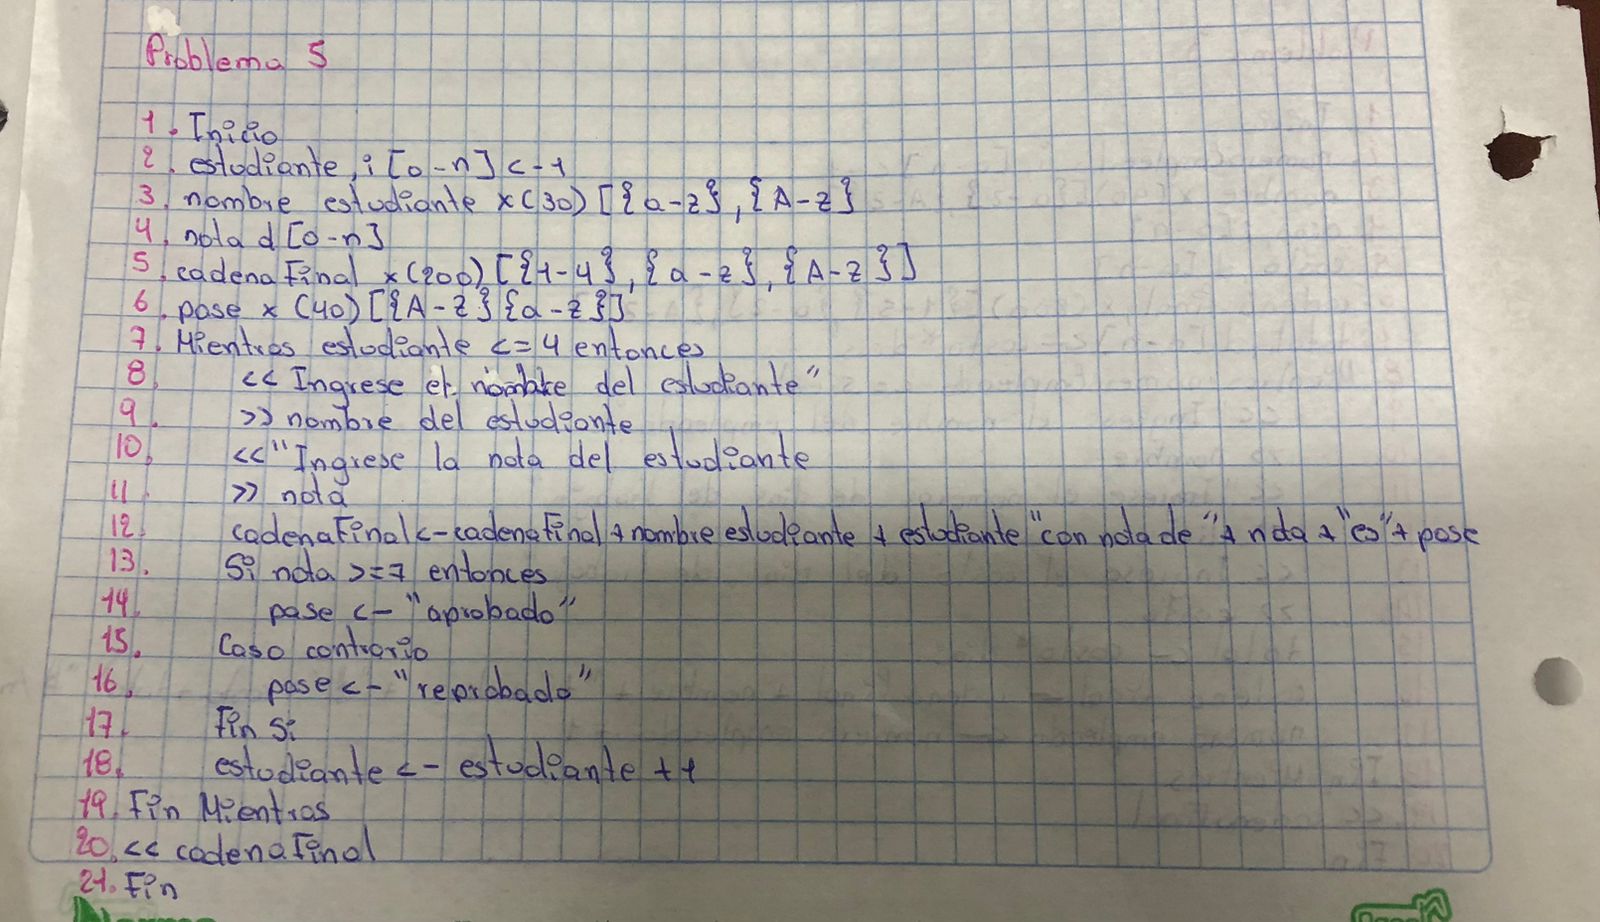 Problema 5
1. Inicio
2. estudiante, i [0-n] <-1
3. nombre estudiante x(30) [{a-z}, {A-z}
4. nota d [0-n]
5. cadenaFinal x(200) [{1-4}, {a-z}, {A-z}]
6. pase x (40) [{A-z}{a-z}]
7. Mientras estudiante <= 4 entonces
8. << Ingrese el nombre del estudiante"
9. >> nombre del estudiante
10. <<"Ingrese la nota del estudiante
11. >> nota
12. cadenaFinal <- cadenaFinal + nombre estudiante + estudiante "con nota de" + nota + "es" + pase
13. Si nota >= 7 entonces
14. pase <- "aprobado"
15. Caso contrario
16. pase <- "reprobado"
17. Fin Si
18. estudiante <- estudiante ++
19. Fin Mientras
20. << cadenaFinal
21. Fin
Norma